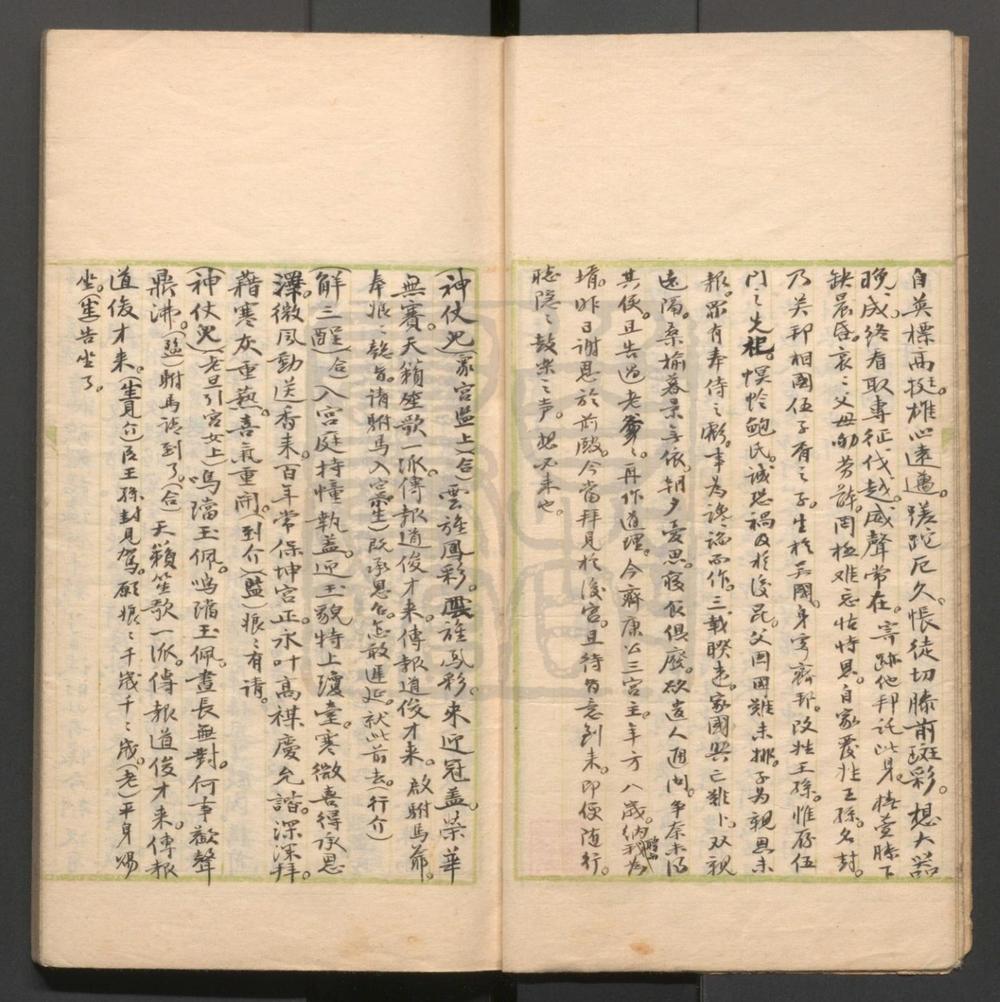 自英標高挺。雄心遠邁。蹉跎已久。悵徒切膝前斑彩。想大器
晚成。終看取專征伐越。威聲常在。寄跡他邦託此身。椿萱膝下
缺晨昏。哀〻父母劬劳群。罔極难忘怙恃恩。自家覆姓王孫。名封。
乃吴邦相國伍子胥之子。生於吴國。身寄齊邦。改姓王孫。惟存伍
門之先祀。怳恰鮑氏。誠恐禍及於後昆。父因国難未排。子为親恩未
報。罪有奉侍之彰。事为讒謟而作。三載睽違。家國興亡難卜。双親
遠隔。桑榆暮景无依。朝夕憂思。寢飯俱廢。欲遣人通问。争奈未得
其便。且告過老爹〻。再作道理。今齊康公三宫主年方八歲。纳我为
壻。昨日谢恩於前殿。今當拜見於後宫。且待旨意到来。即便随行。
聴隱〻鼓樂之声。想不来也。
(神仗兒)(衆宫监上)(合)雲旌鳳彩。雲旌鳳彩。来迎冠盖。榮華
無賽。天籁笙歌一派。傳報道俊才来。傳報道俊才来。啟駙馬爺。
奉娘〻懿旨。请駙馬入宫。(生)既承恩召。怎敢遲延。就此前去。(行介)
(解三酲)(合)入宫庭持幢執盖。迎玉貌特上瓊臺。寒微喜得承恩
澤。微风動送香来。百年常保坤宫正。永叶高禖慶允諧。深深拜。
藉寒灰重熱。喜氣重開。(到介)(监)娘〻有请。
(神仗兒)(老旦引宫女上)鳴璫玉佩。鳴璫玉佩。晝長無對。何事歡聲
鼎沸。(监)駙馬请到了。(合)天籁笙歌一派。傳報道俊才来。傳報
道俊才来。(生見介)臣王孫封見駕。願娘〻千歲千〻歲。(老)平身赐
坐。(生)告坐了。